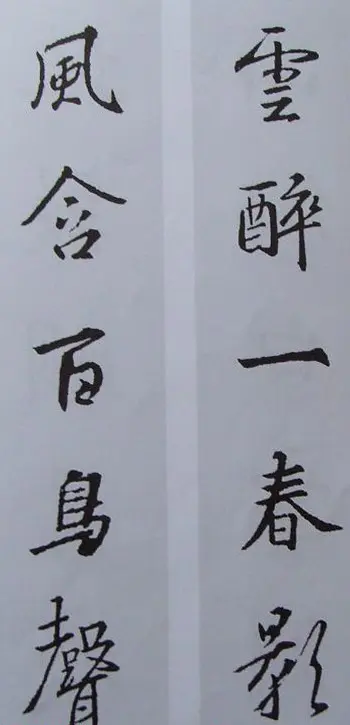 雲醉一春影
風含百鳥聲